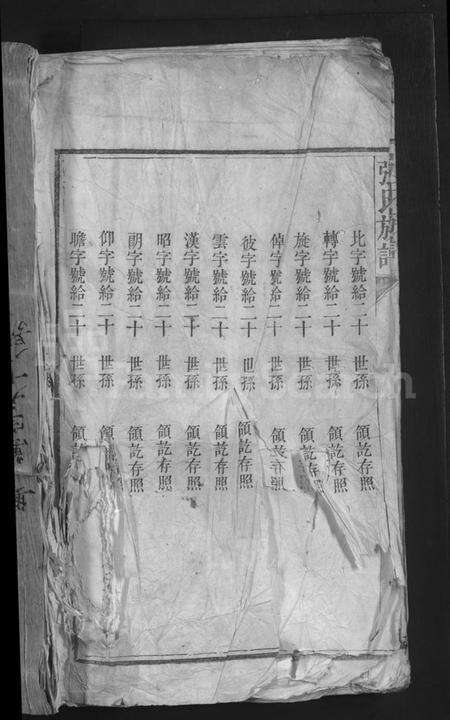 張氏族譜
比字號給二十 世孫 領訖存照
轉字號給二十 世孫 領訖存照
旋字號給二十 世孫 領訖存照
倬字號給二十 世孫 領訖存照
彼字號給二十 世孫 領訖存照
雲字號給二十 世孫 領訖存照
漢字號給二十 世孫 領訖存照
昭字號給二十 世孫 領訖存照
朗字號給二十 世孫 領訖存照
仰字號給二十 世孫 領
瞻字號給二十 世孫 領訖